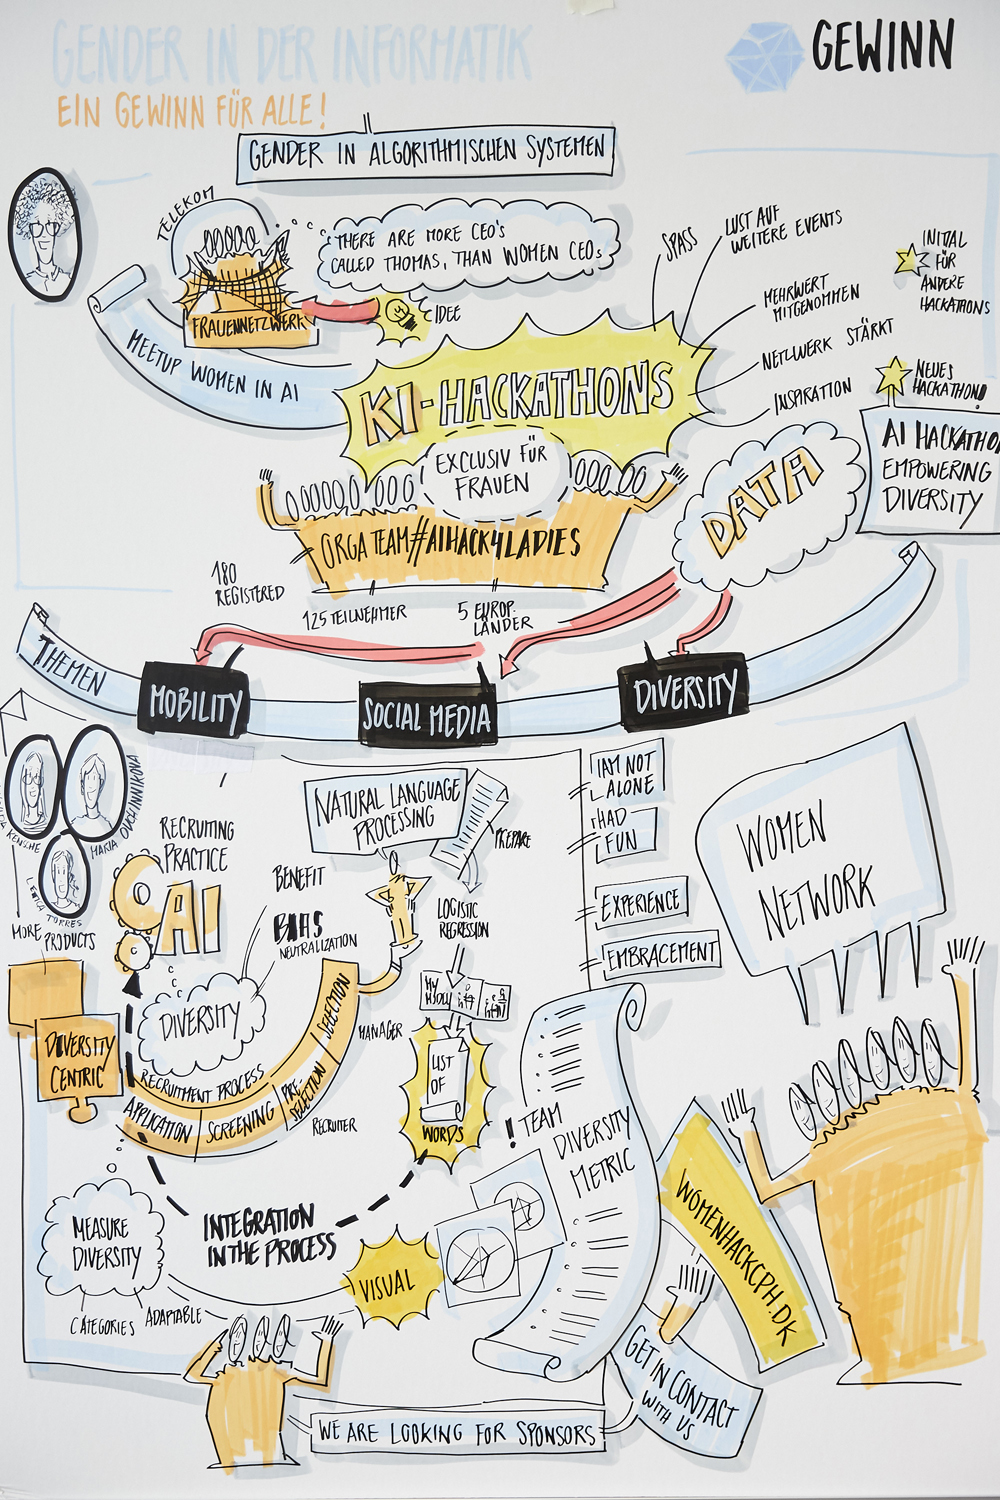 GENDER IN DER INFORMATIK
EIN GEWINN FÜR ALLE!
GEWINN
GENDER IN ALGORITHMISCHEN SYSTEMEN
TELEKOM
THERE ARE MORE CEO's
CALLED THOMAS, THAN WOMEN CEOs
FRAUENNETZWERK
IDEE
MEETUP WOMEN IN AI
KI-HACKATHONS
EXCLUSIV FÜR
FRAUEN
SPASS
LUST AUF
WEITERE EVENTS
MEHRWERT
MITGENOMMEN
NETZWERK STÄRKT
INSPIRATION
INITIAL
FÜR
ANDERE
HACKATHONS
NEUES
HACKATHON!
AI HACKATHO
EMPOWERING
DIVERSITY
DATA
ORGA TEAM #AIHACK4LADIES
180
REGISTERED
125 TEILNEHMER
5 EUROP.
LÄNDER
THEMEN
MOBILITY
SOCIAL MEDIA
DIVERSITY
KENSCHE
MARIA OVCHINNIKOVA
TORRES
MORE PRODUCTS
DIVERSITY
CENTRIC
RECRUITING
PRACTICE
AI
BENEFIT
BIAS
NEUTRALIZATION
DIVERSITY
RECRUITMENT PROCESS
APPLICATION
SCREENING
PRE-
SELECTION
SELECTION
MANAGER
RECRUITER
NATURAL LANGUAGE
PROCESSING
PREPARE
LOGISTIC
REGRESSION
LIST
OF
WORDS
INTEGRATION
IN THE PROCESS
MEASURE
DIVERSITY
CATEGORIES
ADAPTABLE
VISUAL
! TEAM
DIVERSITY
METRIC
I AM NOT
ALONE
HAD
FUN
EXPERIENCE
EMBRACEMENT
WOMEN
NETWORK
WOMENHACKCPH.DK
GET IN CONTACT
WITH US
WE ARE LOOKING FOR SPONSORS